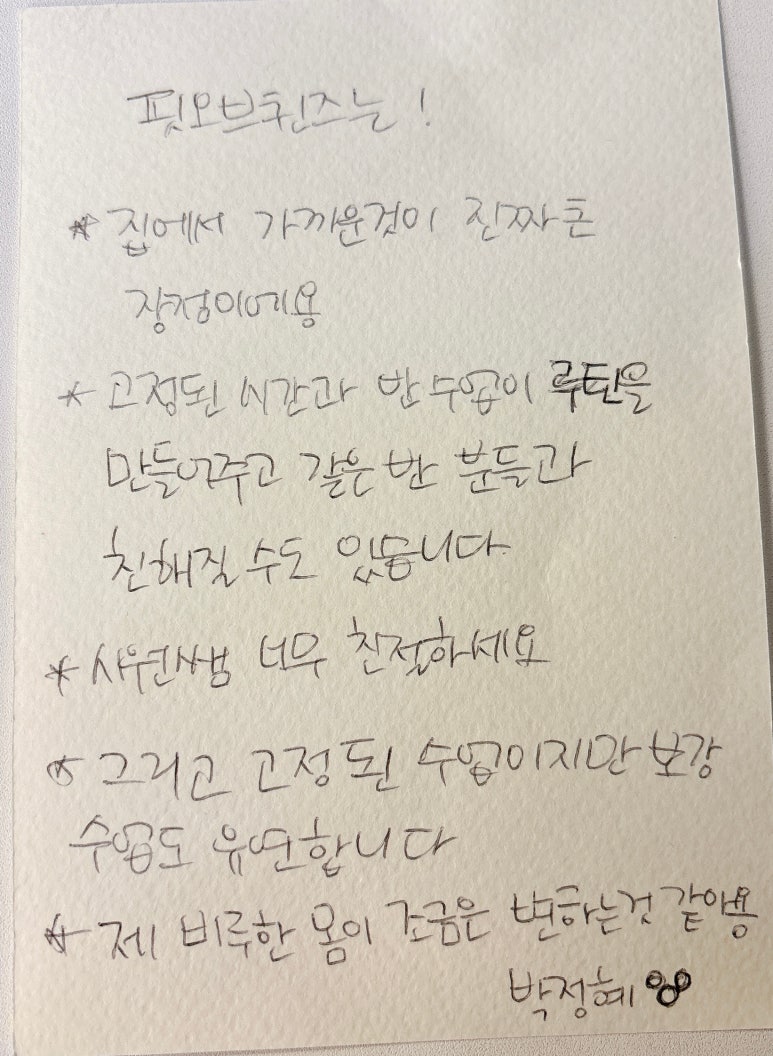 핏오브퀸즈는!
* 집에서 가까운것이 진짜큰
장점이에용
* 고정된 시간과 반수업이 루틴을
만들어주고 같은 반 분들과
친해질 수도 있습니다
* 샤원쌤 너무 친절하세요
* 그리고 고정된 수업이지만 보강
수업도 유연합니다
* 제 비루한 몸이 조금은 변하는것 같아용
박정혜